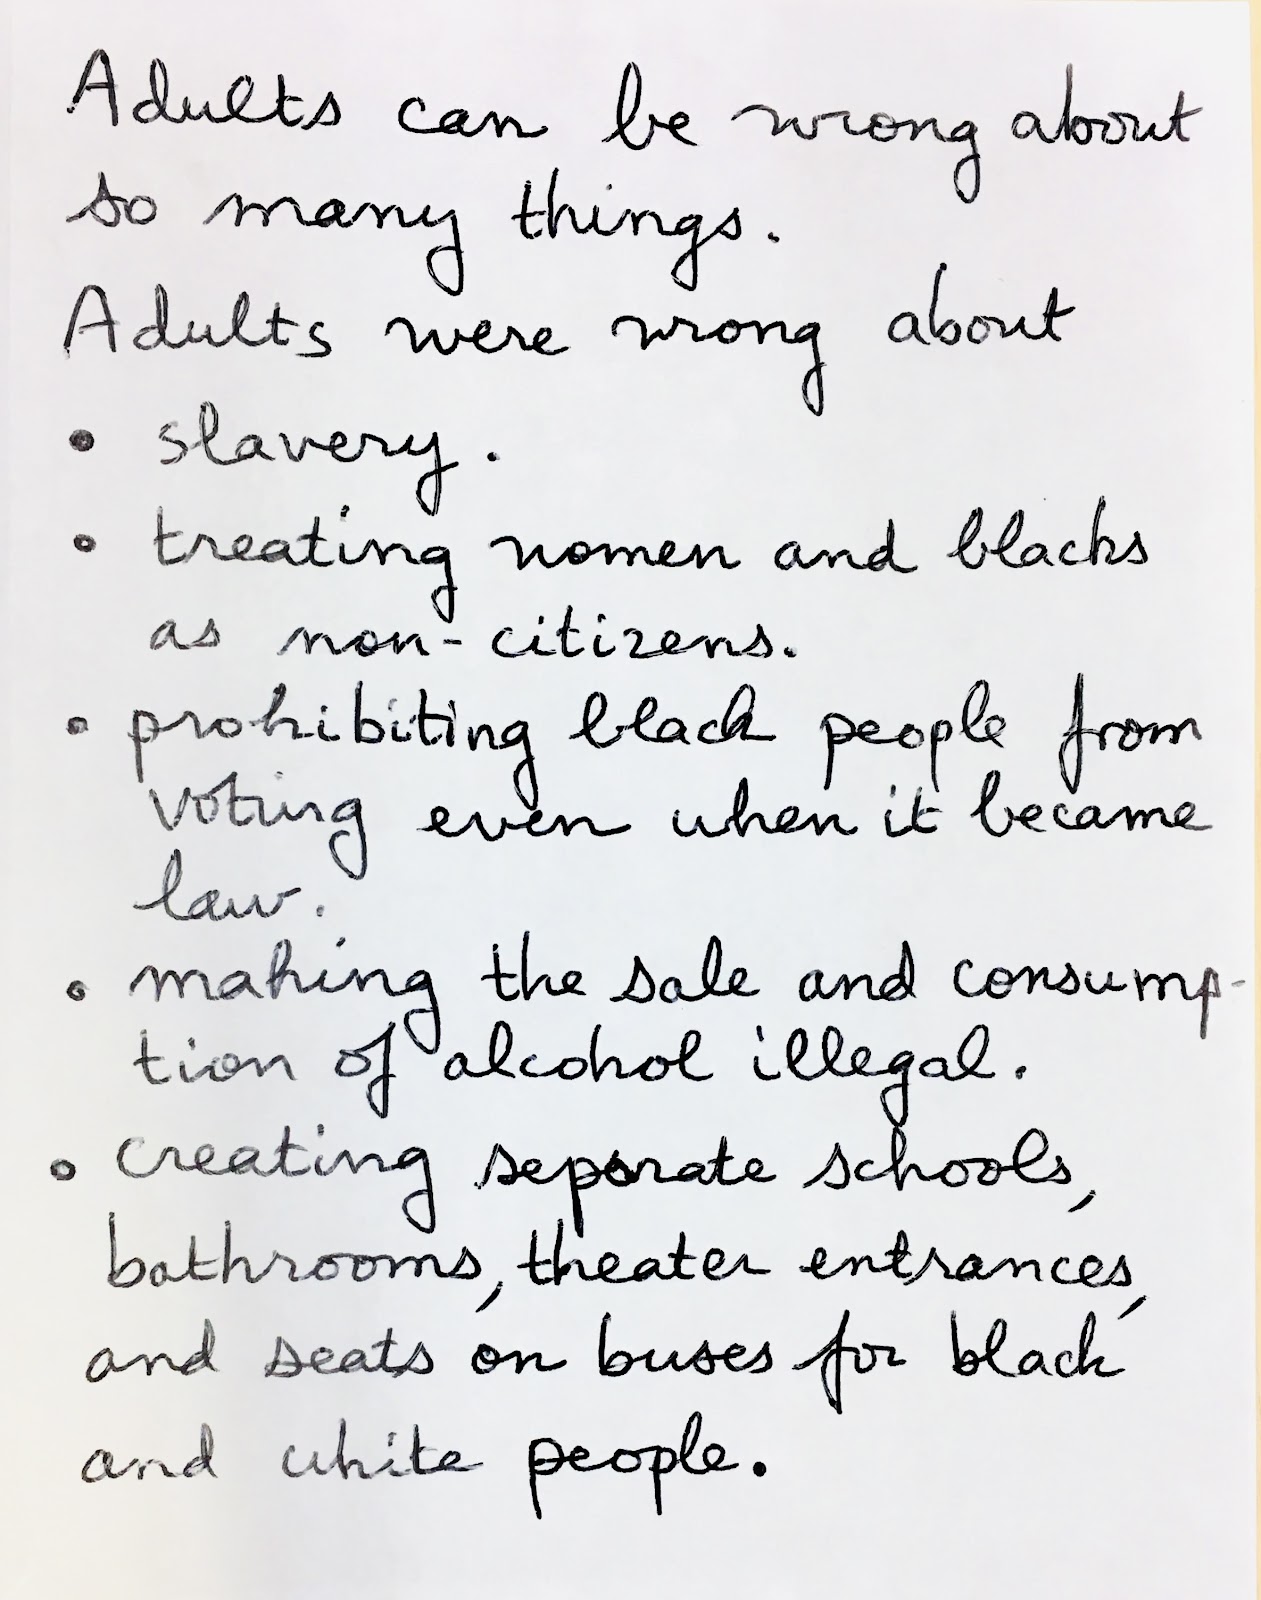 Adults can be wrong about
so many things.
Adults were wrong about
• slavery.
• treating women and blacks
as non-citizens.
• prohibiting black people from
voting even when it became
law.
• making the sale and consump-
tion of alcohol illegal.
• creating separate schools,
bathrooms, theater entrances,
and seats on buses for black
and white people.